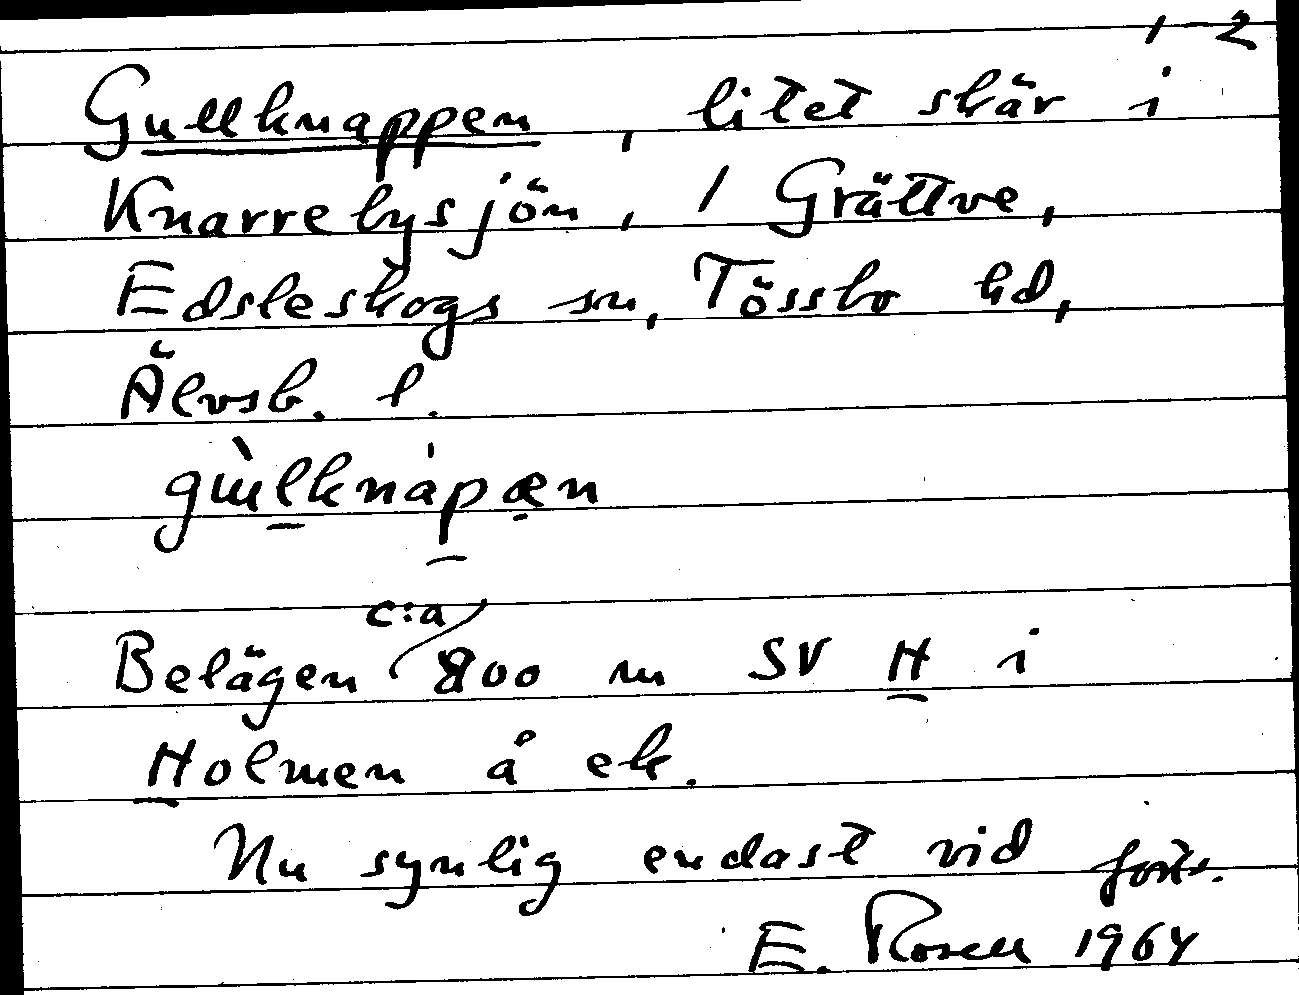 1-2
Gullknappen, litet skär i
Knarrebysjön, 1 Grättve,
Edsleskogs sn, Tössbo hd,
Älvsb. l.
gu̇̀lknápæn
Belägen c:a 800 m SV H i
Holmen å ek.
Nu synlig endast vid forts.
E. Rosell 1964